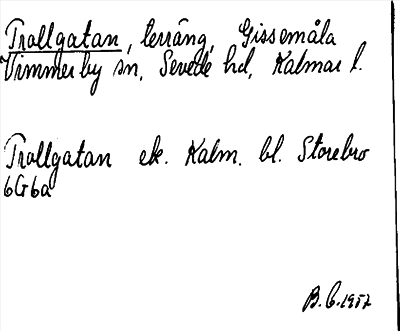 Trollgatan, terräng, Gissemåla
Vimmerby sn, Sevede hd, Kalmar l.
Trollgatan ek. Kalm. bl. Storebro
6G6a
B.C. 1957